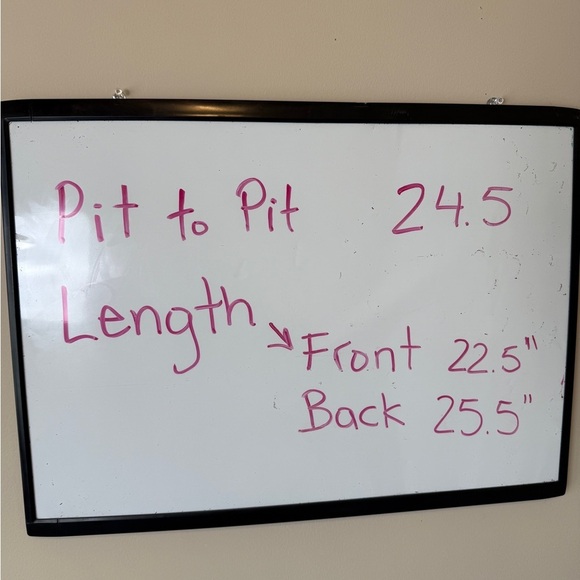 Pit to Pit 24.5
Length
↘ Front 22.5"
Back 25.5"